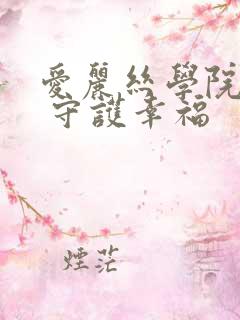 愛麗絲學院
守護幸福
煙茫